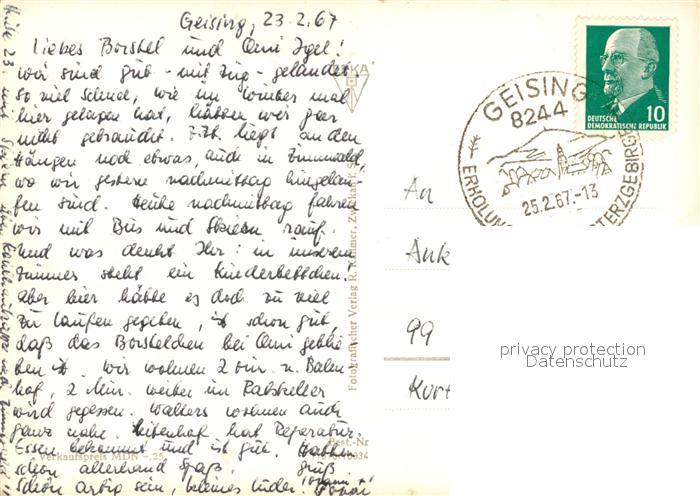 Geising, 23.2.67
Liebes Borstel und Omi Igel!
wir sind gut - mit Zug - gelandet.
So viel Schnee, wie im Sommer mal
hier gelegen hat, hätten wir gar
nicht gebraucht. Z.Zt. liegt an den
Hängen noch etwas, auch in Zinnwald,
wo wir gestern nachmittag hingelau-
fen sind. Heute nachmittag fahren
wir mit Bus und Skiern rauf.
Und was denkt Ihr: in unserem
Zimmer steht ein Kinderbettchen!
Aber hier hätte es doch zu viel
zu laufen gegeben, ist schon gut,
daß das Borstelchen bei Omi geblie-
ben ist. Wir wohnen 2 Min. v. Bahn-
hof, 2 Min. weiter im Ratskeller
wird gegessen. Walters wohnen auch
ganz nahe. hat Reparatur.
Essen bekommt und ist gut. Hatten
schon allerhand Spaß. Gruß
schön artig sein, kleines Luder!
Heute 23.
Verkaufspreis MDN -,25
Best.-Nr
Fotografischer Verlag R. Kallmer, Zwickau
GEISING
8244
25.2.67.-13
ERHOLUN
TERZGEBIRG
10
DEUTSCHE
DEMOKRATISCHE REPUBLIK
An
Ank
99
Kurt
privacy protection
Datenschutz